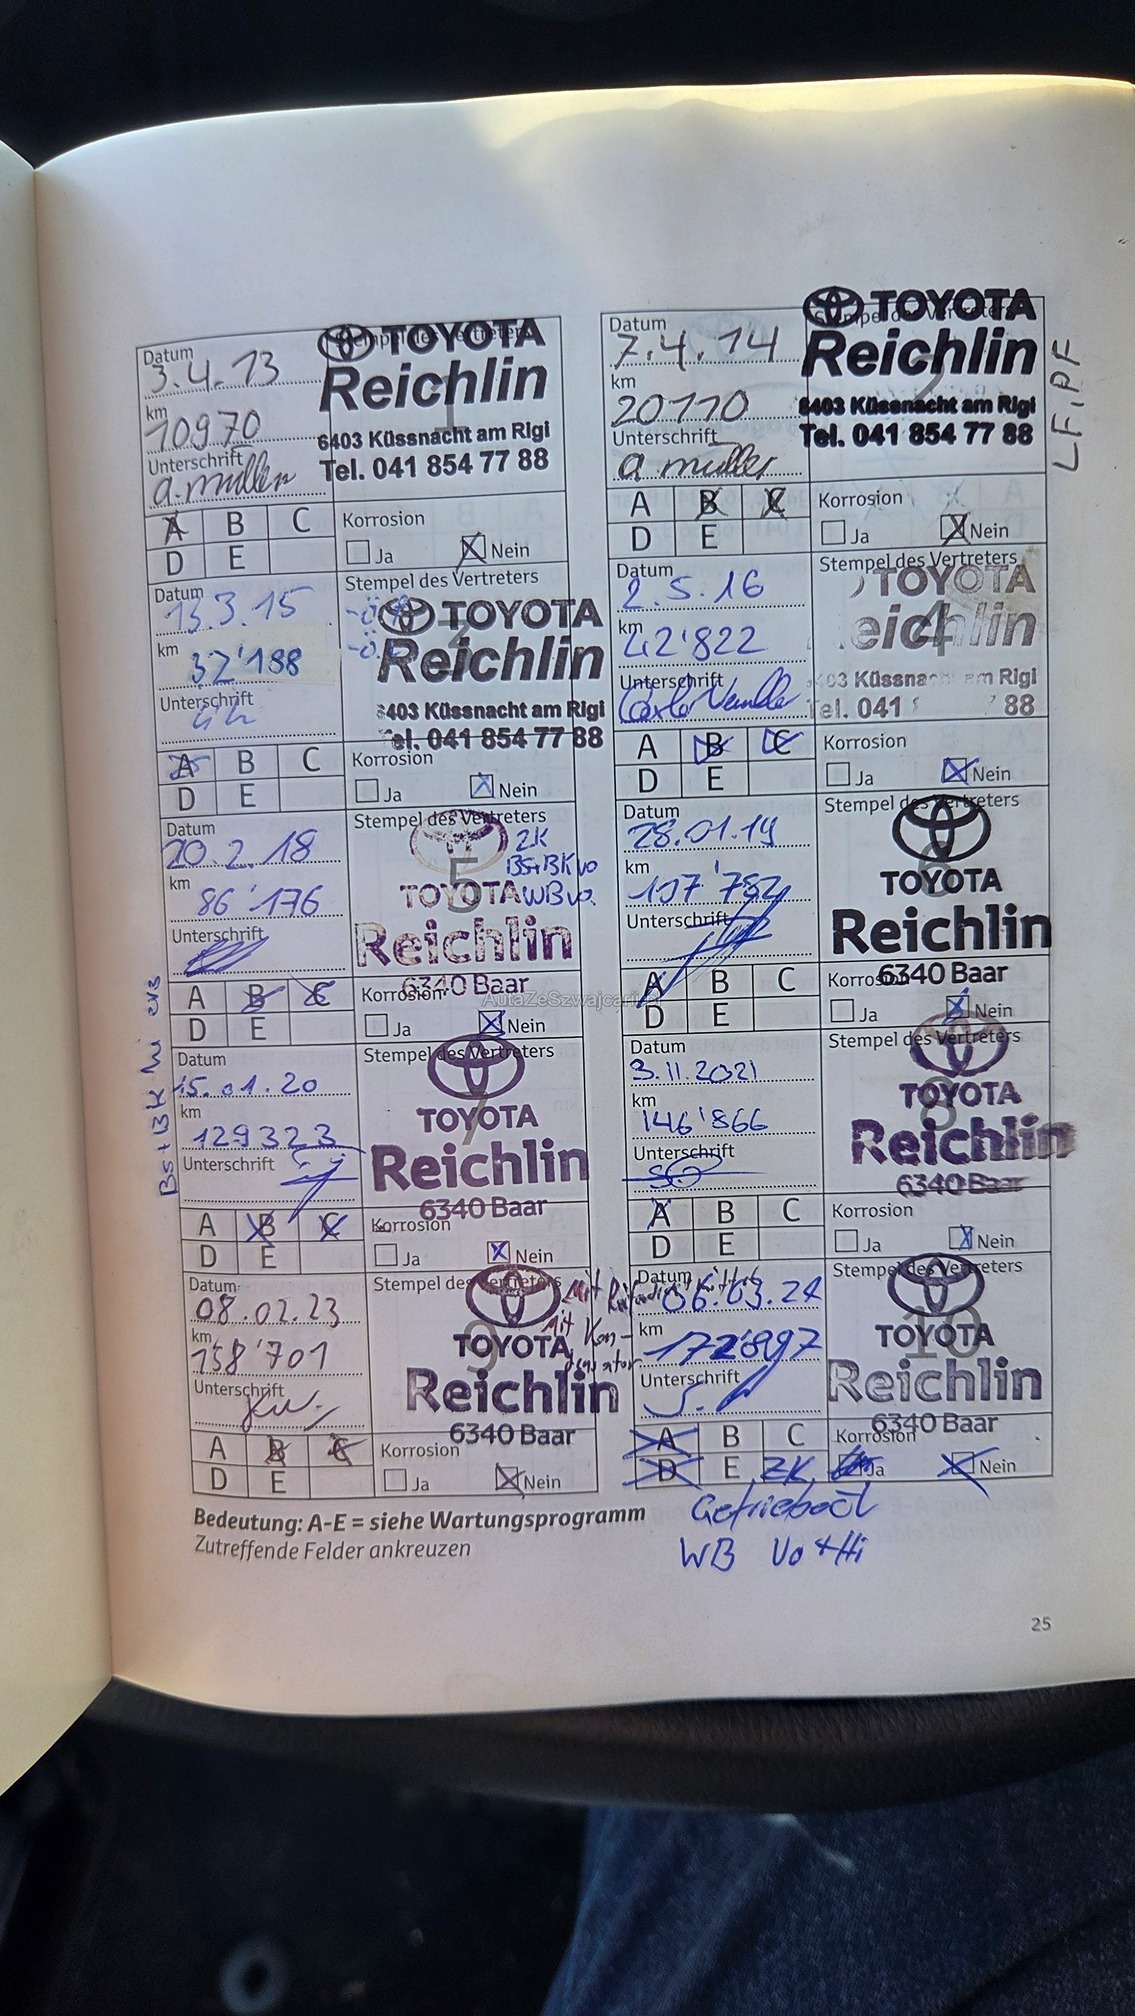 Datum
3.4.13
km
10970
Unterschrift
a. müller
TOYOTA
Stempel des Vertreters
Reichlin
1
6403 Küssnacht am Rigi
Tel. 041 854 77 88
A B C
D E
Korrosion
Ja Nein
Datum
7.4.14
km
20110
Unterschrift
a müller
TOYOTA
Stempel des Vertreters
Reichlin
2
6403 Küssnacht am Rigi
Tel. 041 854 77 88
LF, PF
A B C
D E
Korrosion
Ja Nein
Datum
13.3.15
km
32'188
Unterschrift
Stempel des Vertreters
TOYOTA
Reichlin
6403 Küssnacht am Rigi
Tel. 041 854 77 88
A B C
D E
Korrosion
Ja Nein
Datum
2.5.16
km
42'822
Unterschrift
Stempel des Vertreters
TOYOTA
eichlin
4
03 Küssnac am Rigi
el. 041 88
A B C
D E
Korrosion
Ja Nein
Datum
20.2.18
km
86'176
Unterschrift
Stempel des Vertreters
ZK
BS+BK vo
5
TOYOTA WB vo.
Reichlin
6340 Baar
A B C
D E
Korrosion
Ja Nein
Datum
28.01.19
km
107'782
Unterschrift
Stempel des Vertreters
6
TOYOTA
Reichlin
6340 Baar
A B C
D E
Korrosion
Ja Nein
AutaZeSzwajcarii.pl
Bs+BK hi ers
Datum
15.01.20
km
129323
Unterschrift
Stempel des Vertreters
7
TOYOTA
Reichlin
6340 Baar
A B C
D E
Korrosion
Ja Nein
Datum
3.11.2021
km
146'866
Unterschrift
Stempel des Vertreters
8
TOYOTA
Reichlin
6340 Baar
A B C
D E
Korrosion
Ja Nein
Datum
08.02.23
km
158'701
Unterschrift
Stempel des Vertreters
Mit
Mit Kon-
densator
9
TOYOTA
Reichlin
6340 Baar
A B C
D E
Korrosion
Ja Nein
Datum
06.03.24
km
172'897
Unterschrift
Stempel des Vertreters
10
TOYOTA
Reichlin
6340 Baar
A B C
D E ZK
Korrosion
Ja Nein
Getriebeöl
WB Vo + Hi
Bedeutung: A-E = siehe Wartungsprogramm
Zutreffende Felder ankreuzen
25